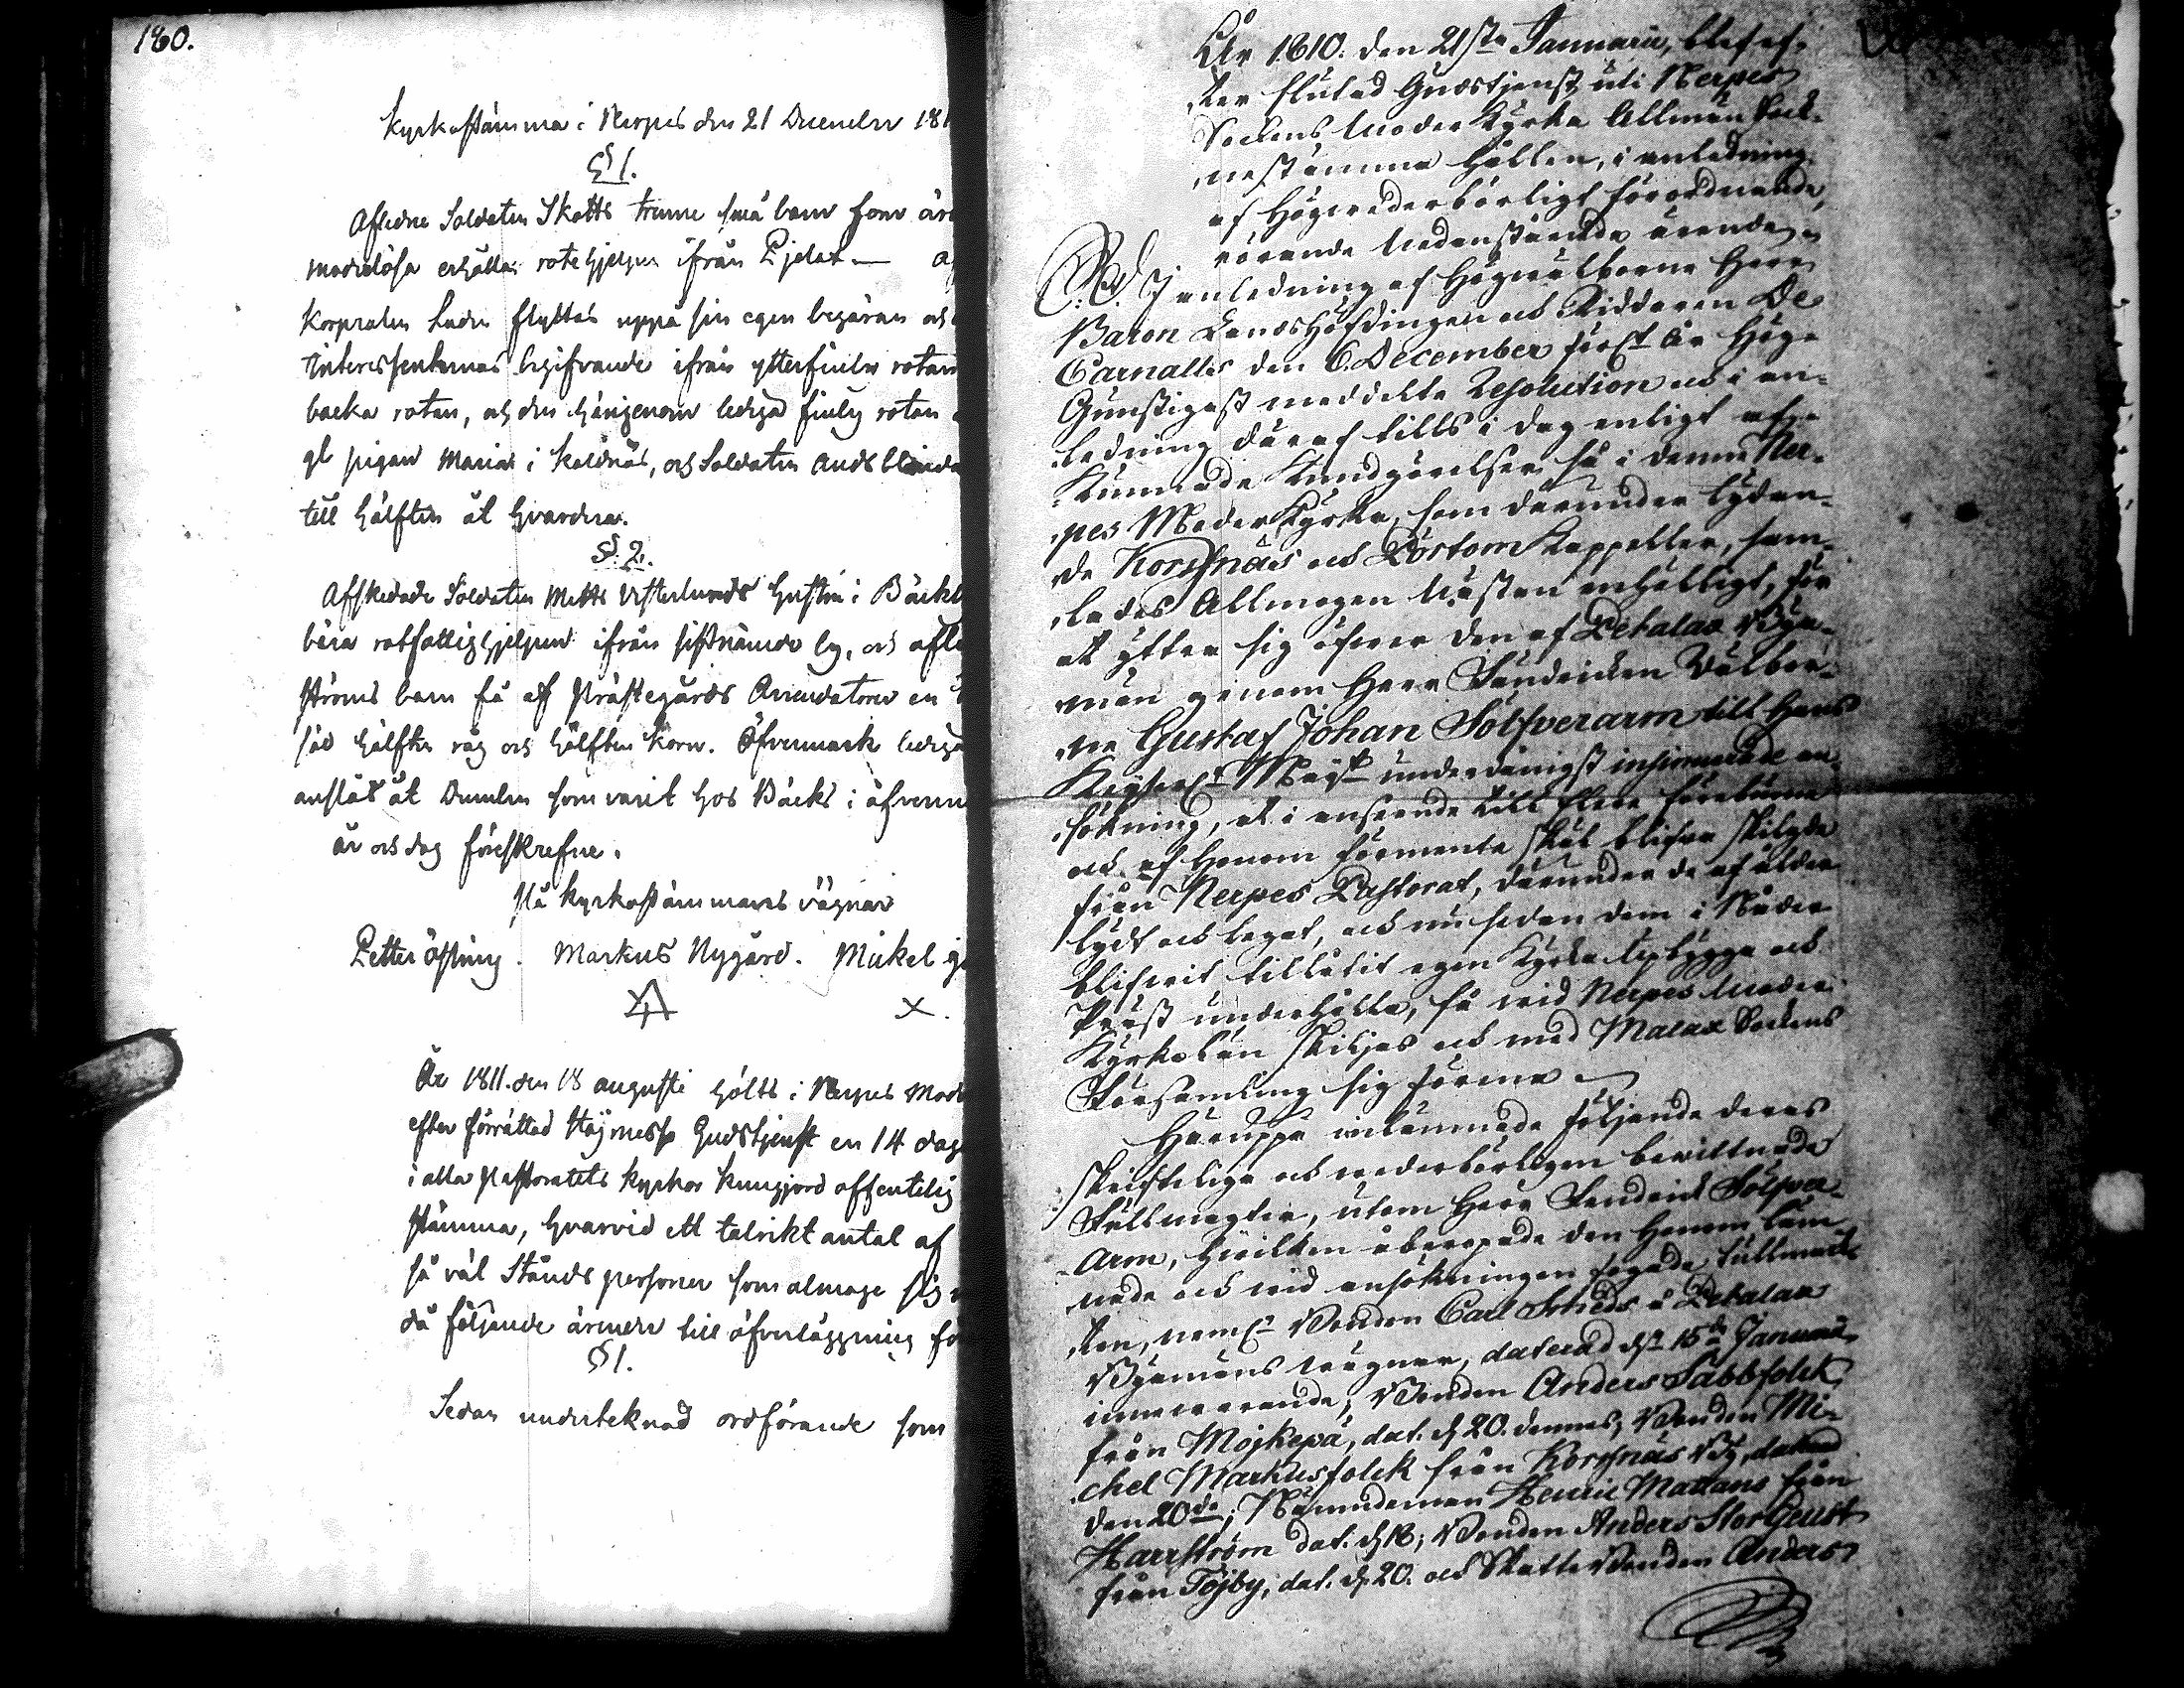 160.
Kyrkostämma i Nerpes den 21 December 181
§ 1.
Aflidne Soldaten Skotts trenne små barn som är
moderlösa erhålla rotehjelpen ifrån Pjelax — a
Korpralen Lader flyttas uppå sin egen begäran och
Interessenternas begifvande ifrån ytterfinby rotan
backa rotan, och den härigenom lediga finby rotan
gl pigan Maria i Kaldnäs, och Soldaten Ands blinda
till hälften åt hvardera.
§. 2.
Afskedade Soldaten Matts Vesterlunds hustru i Bäckb
böra rotfattighjelpen ifrån sistnämde by, och afl
ströms barn få af Prästegårds Arrendatorn en
säd hälften råg och hälften korn. Öfvermark lediga
anslås åt Dumben som varit hos Bäcks i öfverm
år och dag föreskrefne.
På kyrkostämmans vägnar
Petter östing. Markus Nygård. Mickel
År 1811. den 18 augusti hölts i Nerpes Mod
efter förrättad Höymesso Gudstjenst en 14 dag
i alla Pastoratets kyrkor kungjord offentelig
stämma, hvarvid ett talrikt antal af
så väl Stånds personer som almoge sig
då följande ärender till öfverläggning fö
§ 1.
Sedan underteknad ordförande som
År 1810. den 21sta Januarii, blef ef-
ter slutad Gudstjenst uti Nerpes
Sockens Moder Kyrka Allmän Sock-
nestämma hållen, i anledning
af Högvederbörligt förordnande,
rörande Nedanstående ärende.
S. D. I anledning af Högvälborne Herr
Baron Landshöfdingen och Riddaren De
Carnalls den 6. December sistl. år Höge
Gunstigast meddelte Resolution och i an-
ledning däraf tills i dag enligt afge
Kunnade Kundgörelser så i denne Ner-
pes Moder Kyrka, som därunder lydan-
de Korsnäs och Pörtom Kappeller, sam-
lades Allmogen nästan enhälligt, för
att yttra sig öfver den af Petalax Bya-
män genom Herr Sundicken Välbor-
ne Gustaf Johan Sölfverarm till Hans
Kejserl. Maijt underdånigst insinuerade an-
sökning, att i anseende till flere föreburne
och af Honom förmente skäl blifva skilgde
från Nerpes Pastorat, därunder de af ålder
lydt och legat, och nu sedan dem i Nåder
blifvit tillåtit egen Kyrka uppbygga och
Präst underhålla, få vid Nerpes Moder
Kyrkolän skiljas och med Malax Sockens
Församling sig förena.
Häruppå inlämnade följande deras
skriftelige och vederbörligen bevittnade
Fullmagter, utom Herr Sendick Sölfver-
arm, hvilken åberopade den Honom läm-
nade och vid ansökningen fogade fullmak-
ten, neml. Bonden Carl Smeds å Petalax
Byamäns vägnar, daterad d. 15de Januarii
innevarande; Bonden Anders Sabbfolck
från Mojkepä, dat. d. 20. dennes; Bonden Mi-
chel Markusfolck från Korsnäs By, daterad
den 20de; Nämndeman Henric Mattans från
Harrström dat. d. 18; Bonden Anders Storgeust
från Töjby, dat. d. 20. och Skatte Bonden Anders